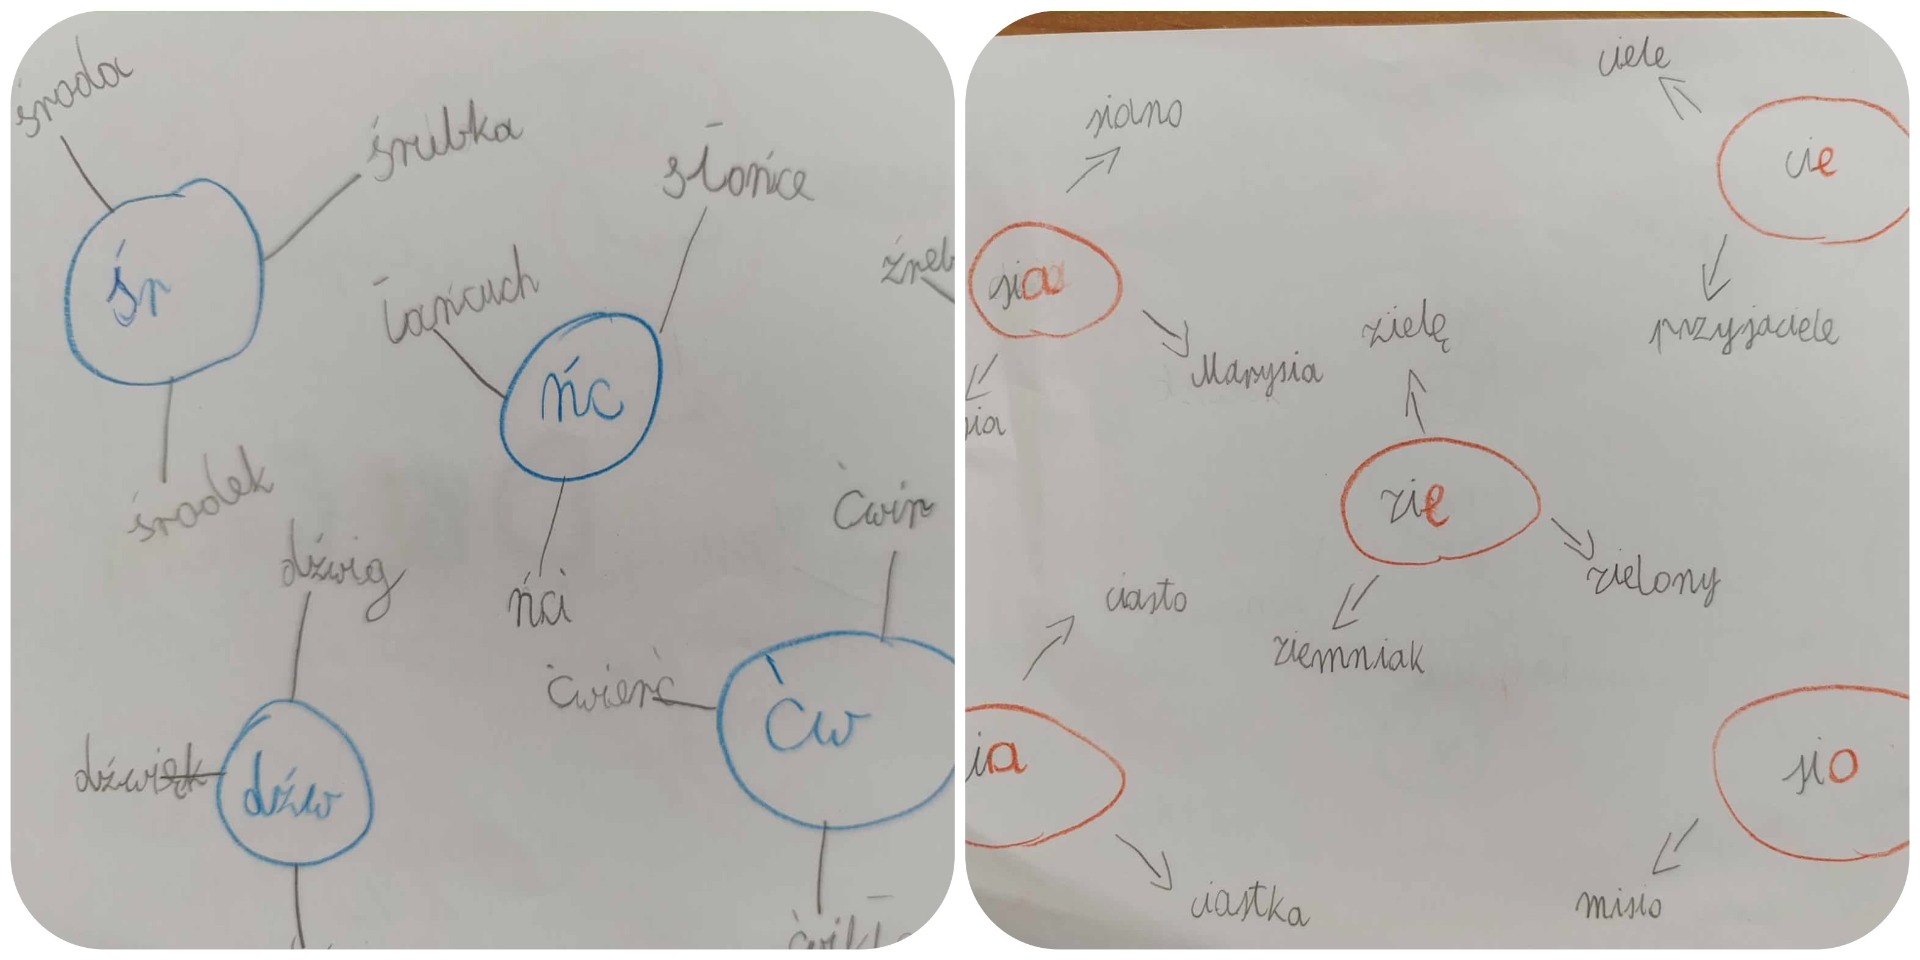 środa
śrubka
śr
środek
słońce
łańcuch
ńc
ńci
dźwig
dźwięk
dźw
Ćwir
ćwierć
Ćw
siano
sia
Marysia
ciele
cie
przyjaciele
zielę
zie
zielony
ziemniak
ciasto
ia
ciastka
sio
misio